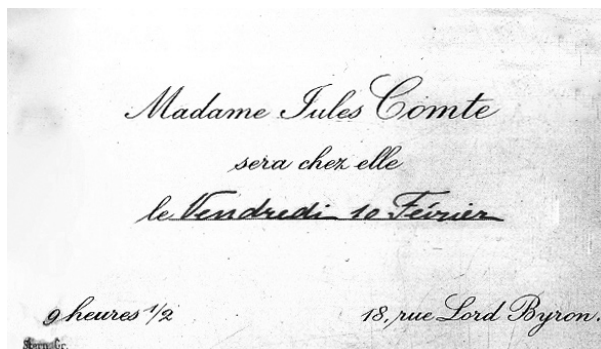 Madame Jules Comte
sera chez elle
le Vendredi 10 Février
9 heures 1/2
18, rue Lord Byron.
Stern Gr.